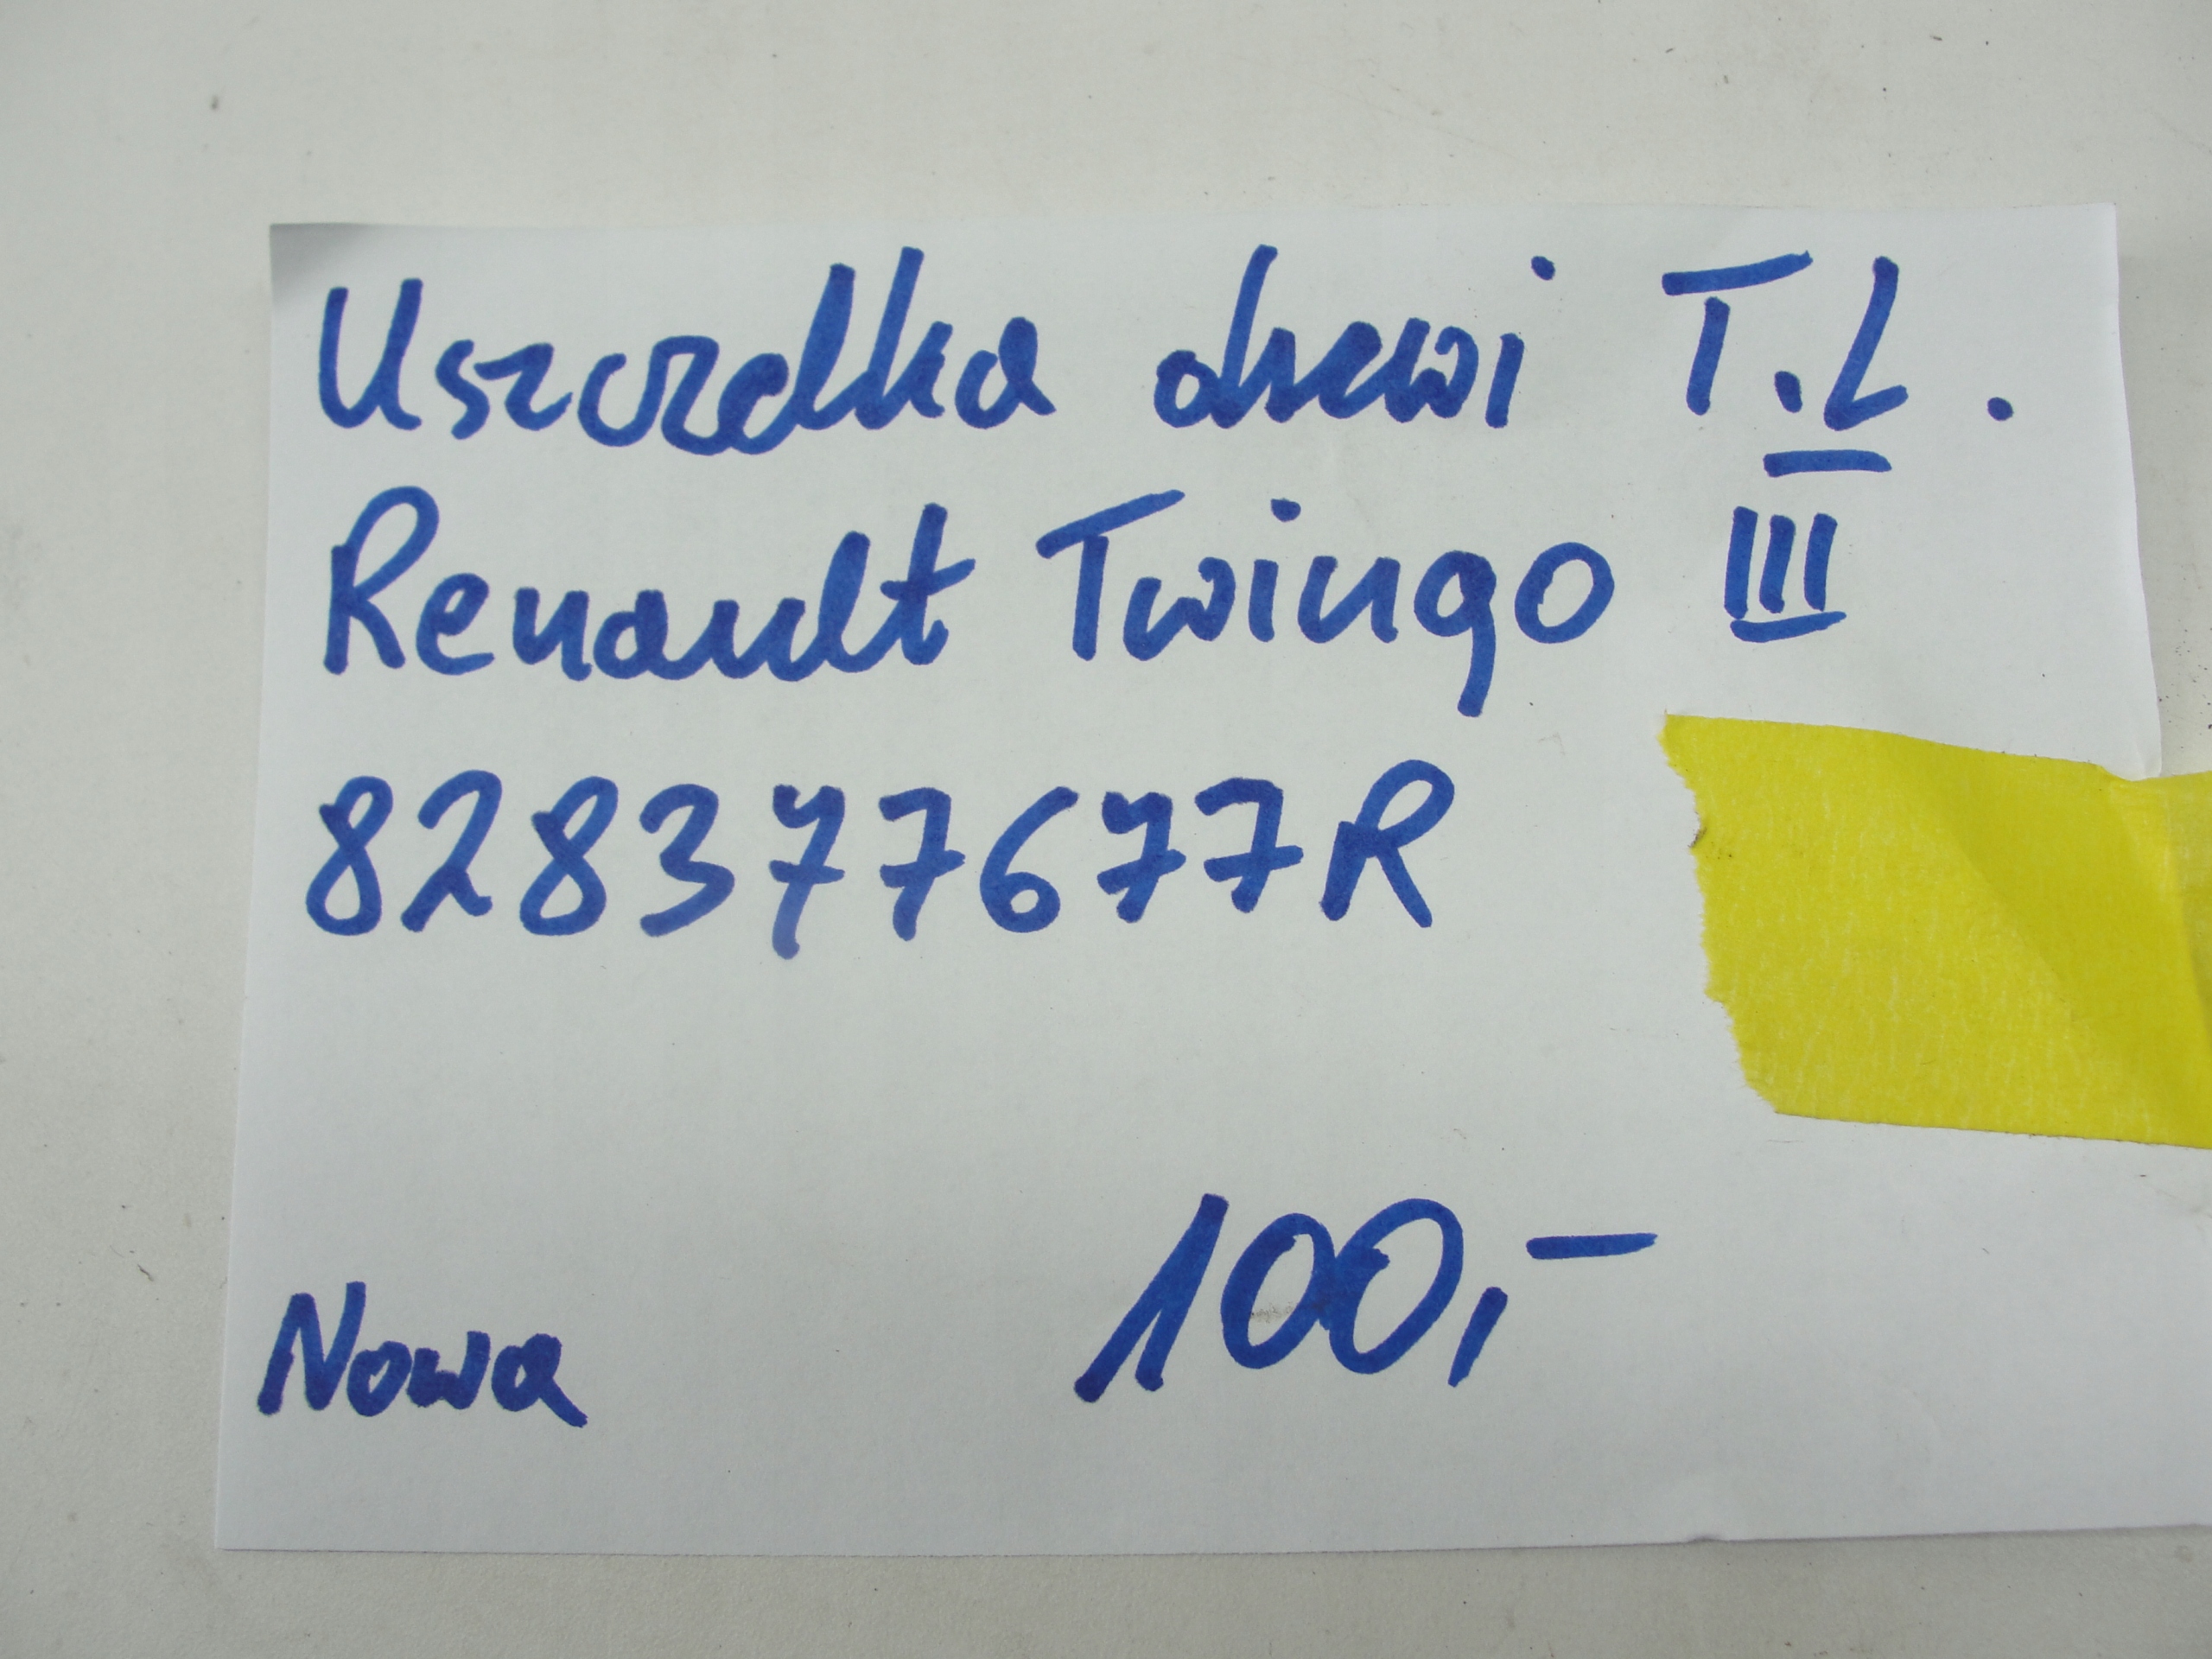 Uszczelka drzwi T.L.
Renault Twingo III
828377677R
Nowa 100,-